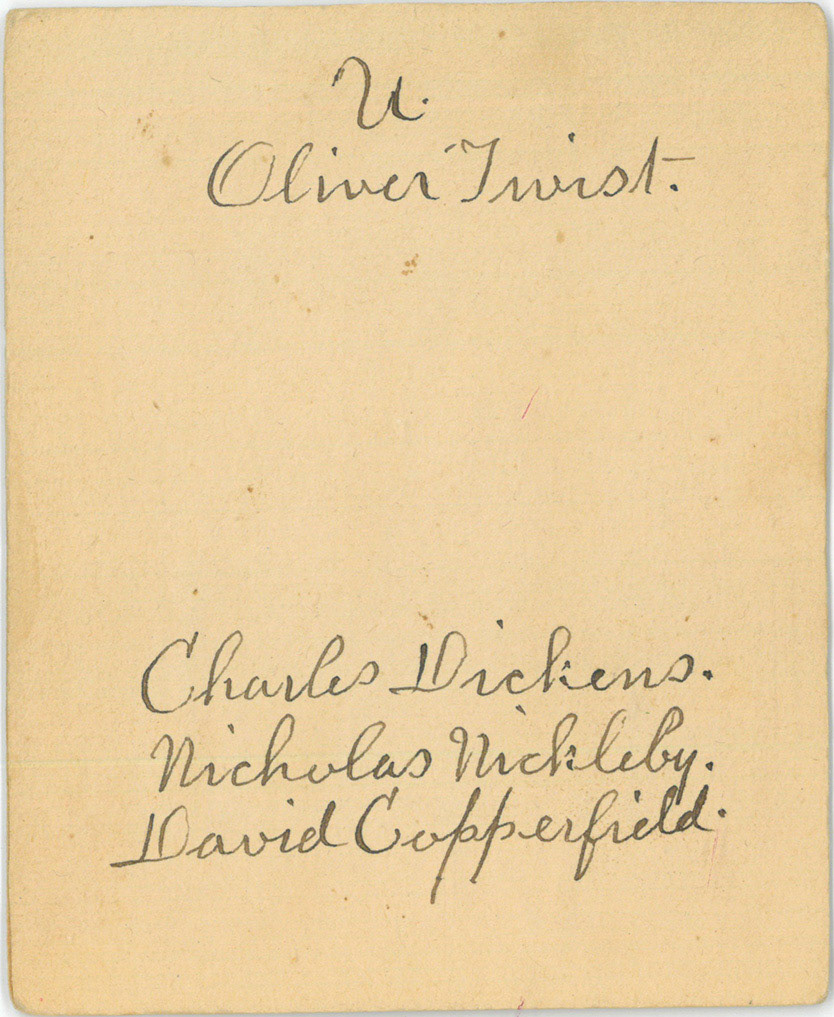 U.
Oliver Twist.
Charles Dickens.
Nicholas Nickleby.
David Copperfield.